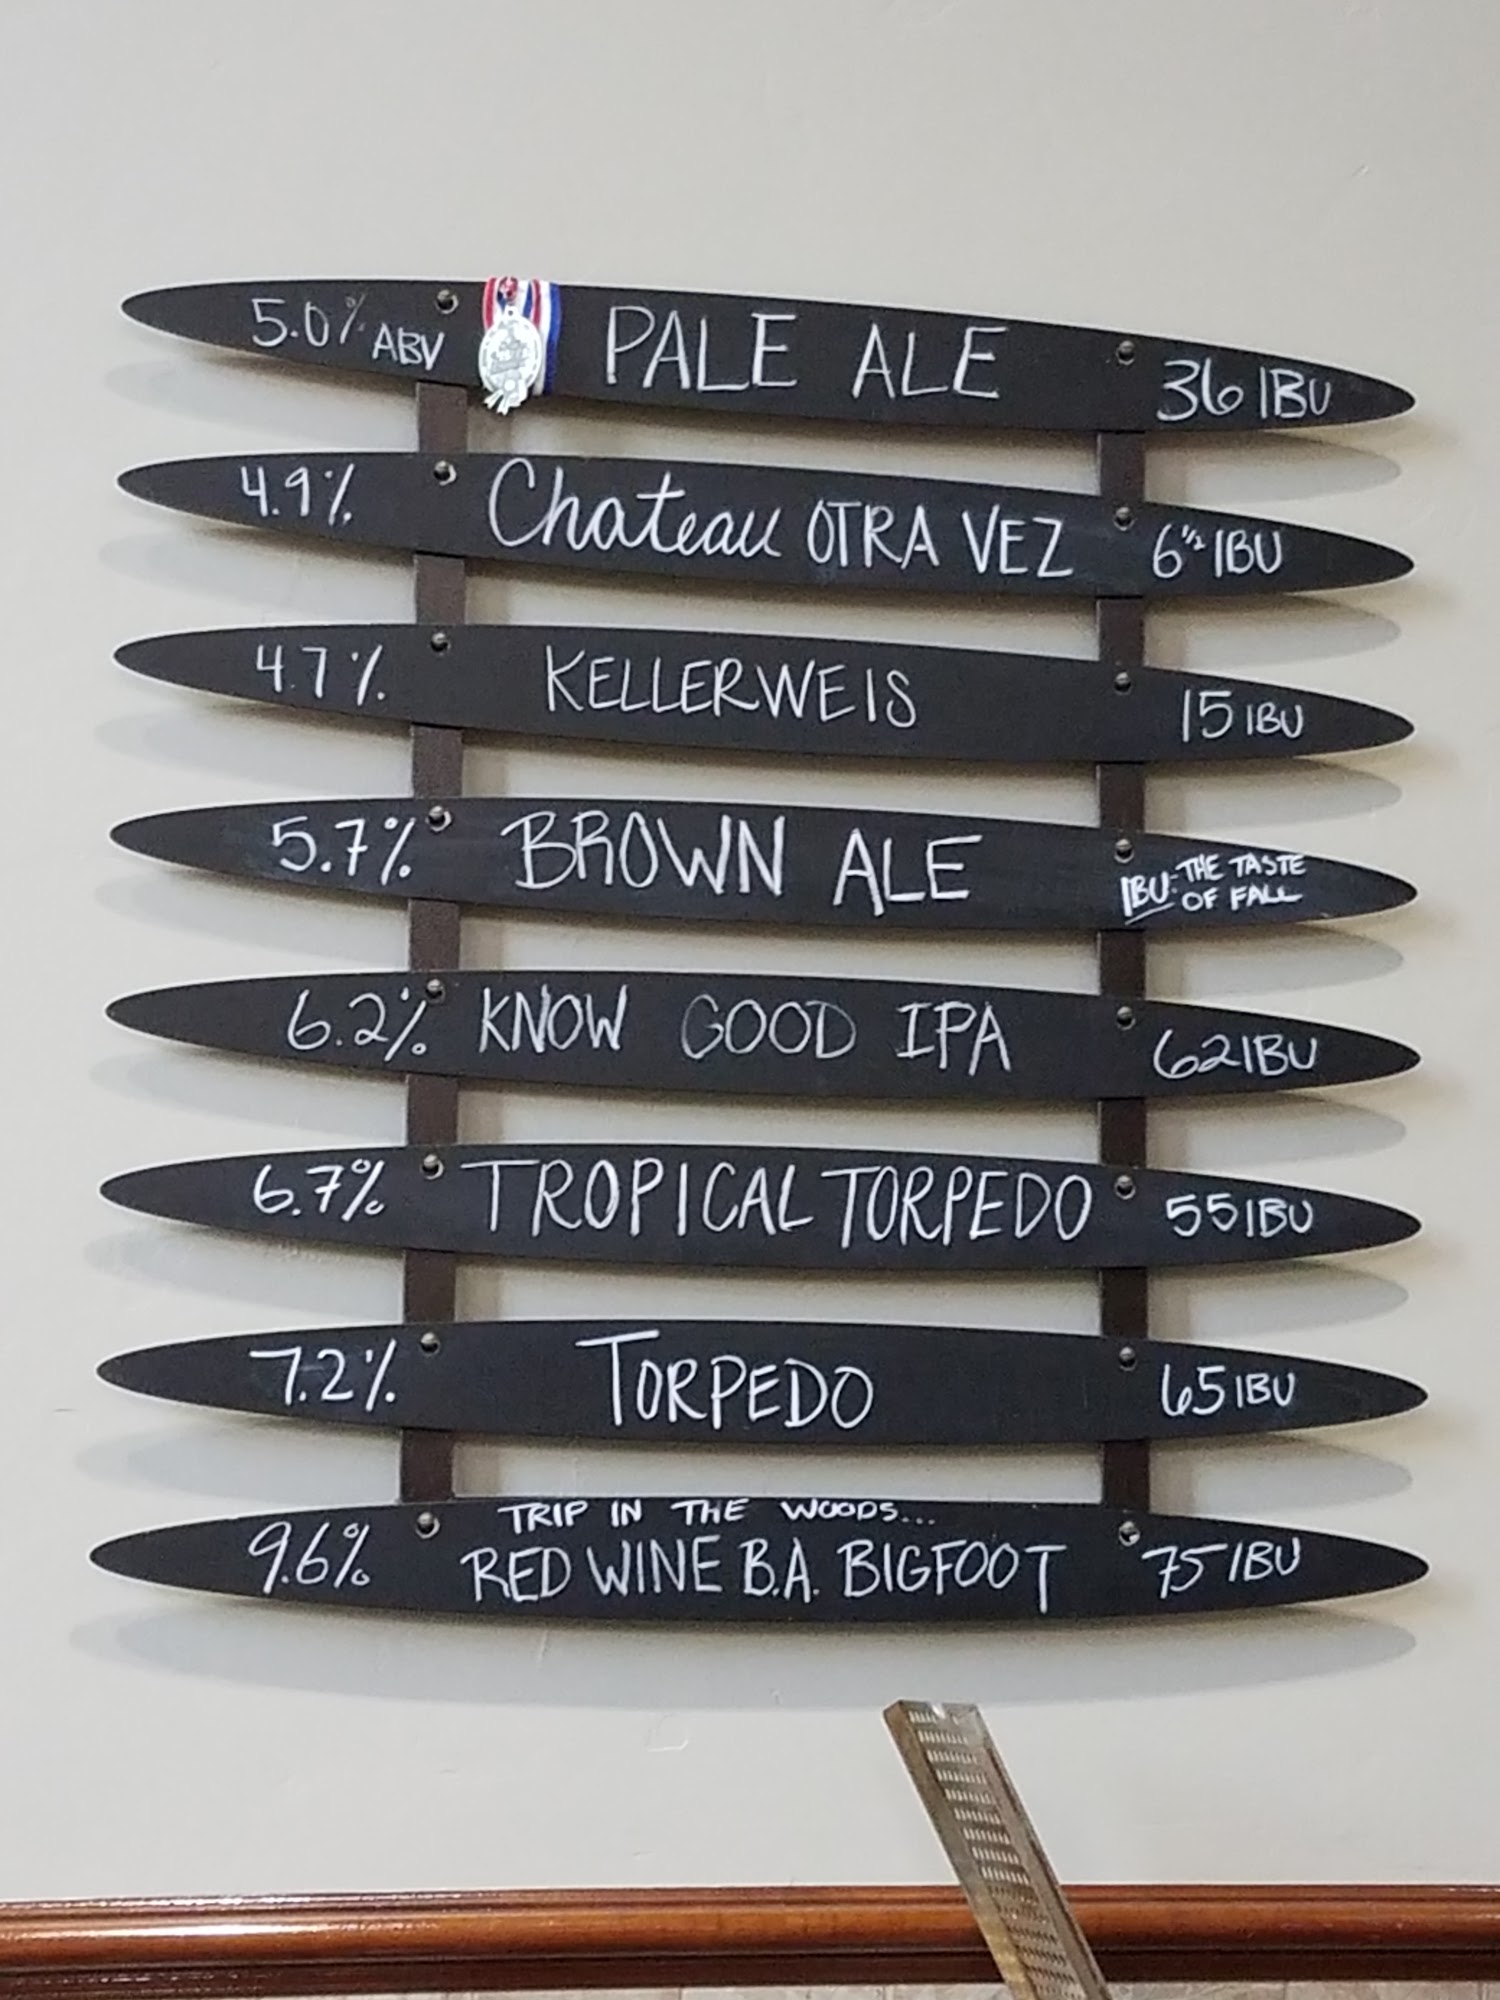 5.0% ABV PALE ALE 36 IBU
4.9% Chateau OTRA VEZ 6 1/2 IBU
4.7% KELLERWEIS 15 IBU
5.7% BROWN ALE IBU: THE TASTE
OF FALL
6.2% KNOW GOOD IPA 62 IBU
6.7% TROPICAL TORPEDO 55 IBU
7.2% TORPEDO 65 IBU
TRIP IN THE WOODS...
9.6% RED WINE B.A. BIGFOOT 75 IBU